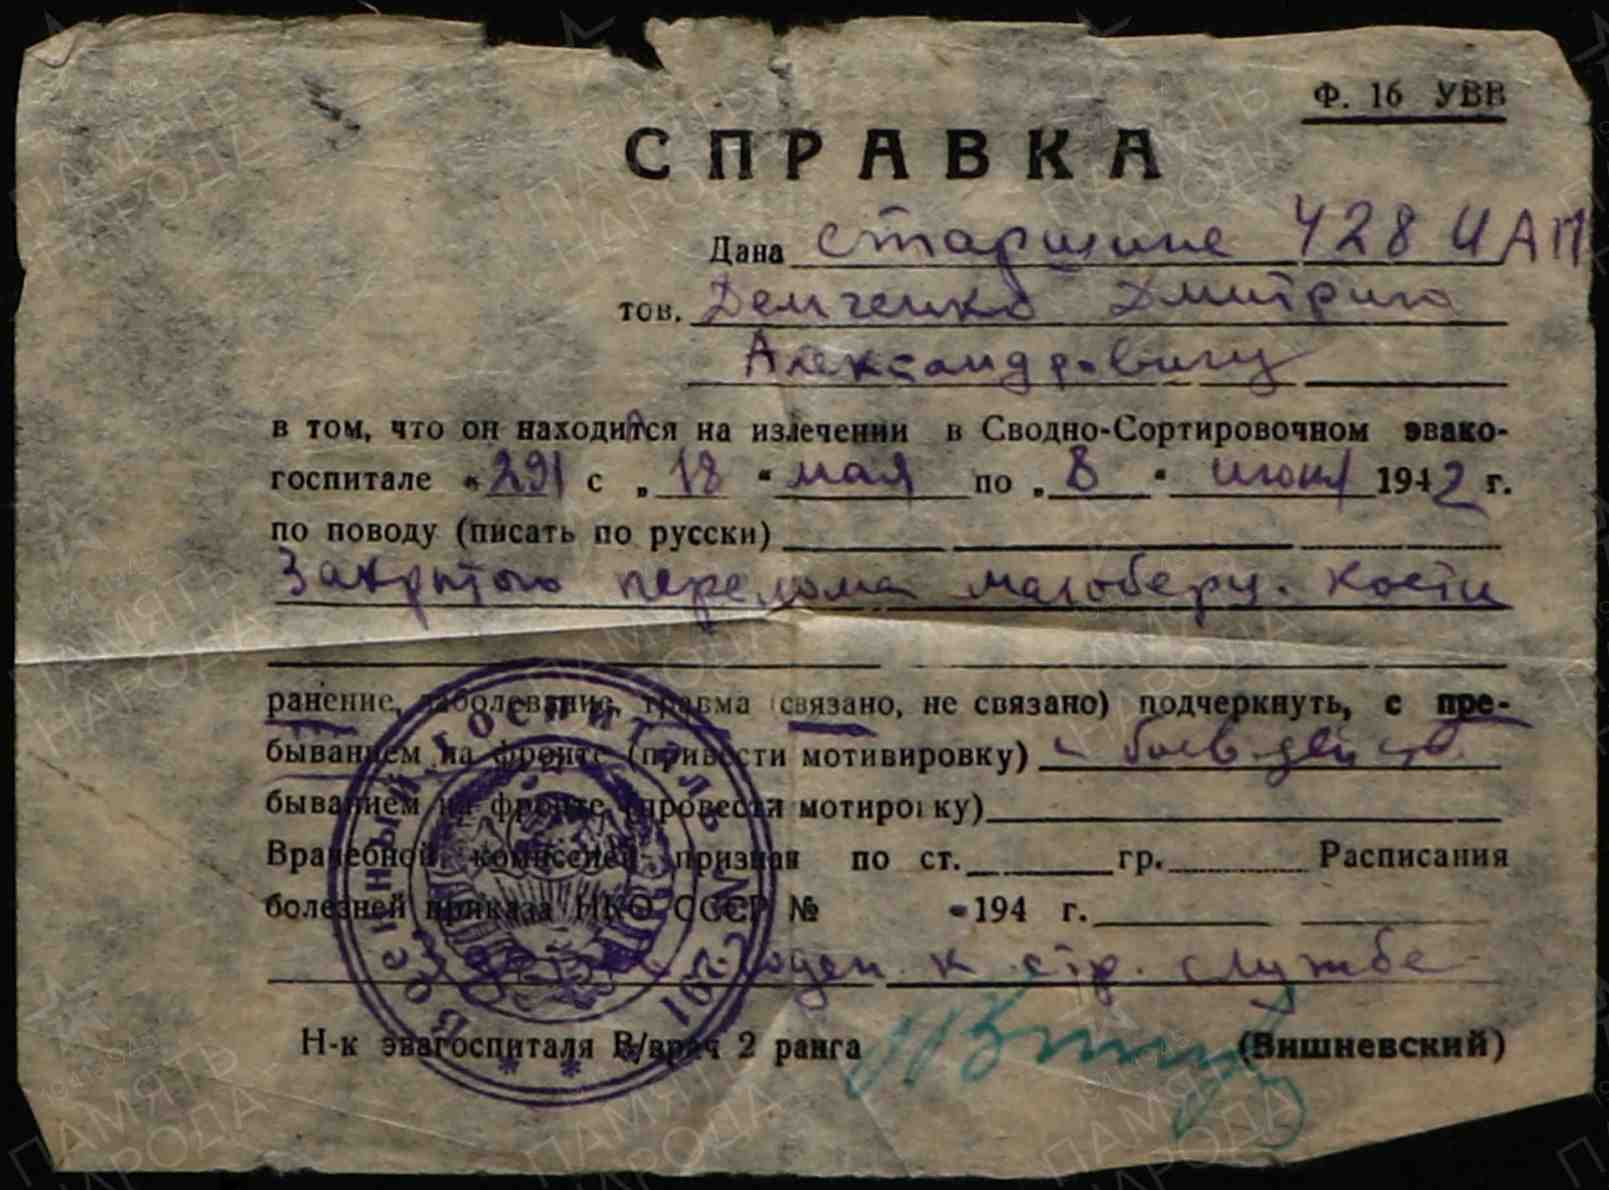 Ф. 16 УВВ
СПРАВКА
Дана старшине 428 ИАП
тов. Демченко Дмитрию
Александровичу
в том, что он находился на излечении в Сводно-Сортировочном эвако-
госпитале «291 с „18 “ мая по „8 “ июня 1942 г.
по поводу (писать по русски)
Закрытого перелома малоберц. кости
ранение, заболевание, травма (связано, не связано) подчеркнуть, с пре-
быванием на фронте (привести мотивировку) с боев. действ.
быванием на фронте (провести мотировку)
Врачебной комиссией признан по ст. гр. Расписания
болезней приказа НКО СССР № -194 г.
годен к стр. службе
Н-к эвагоспиталя В/врач 2 ранга (Вишневский)
ГОСПИТАЛЬ № 291
ПАМЯТЬ НАРОДА